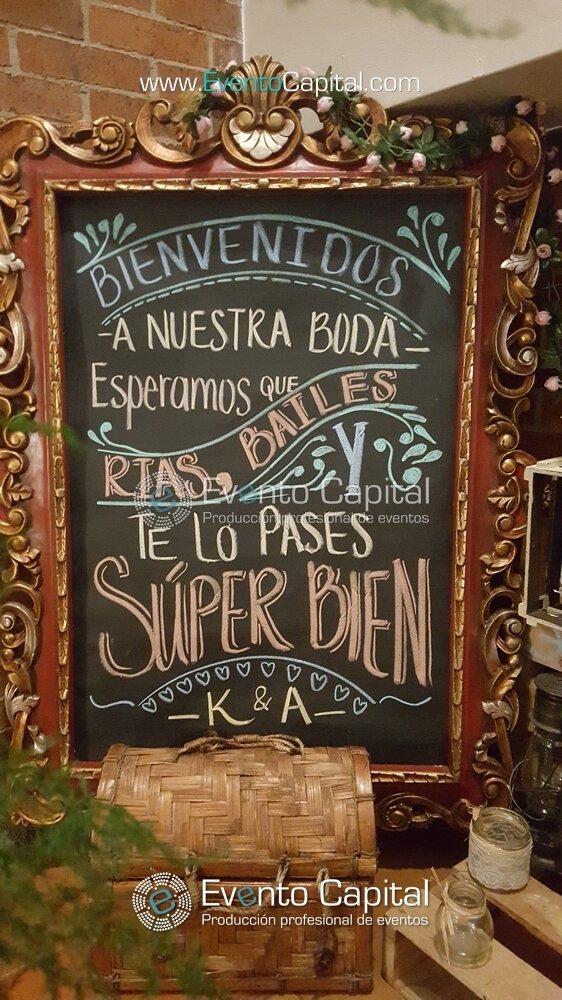 www.EventoCapital.com
BIENVENIDOS
-A NUESTRA BODA-
ESPERAMOS QUE
RIAS, BAILES
Y
Evento Capital
Producción profesional de eventos
TE LO PASES
SÚPER BIEN
-K & A-
Evento Capital
Producción profesional de eventos